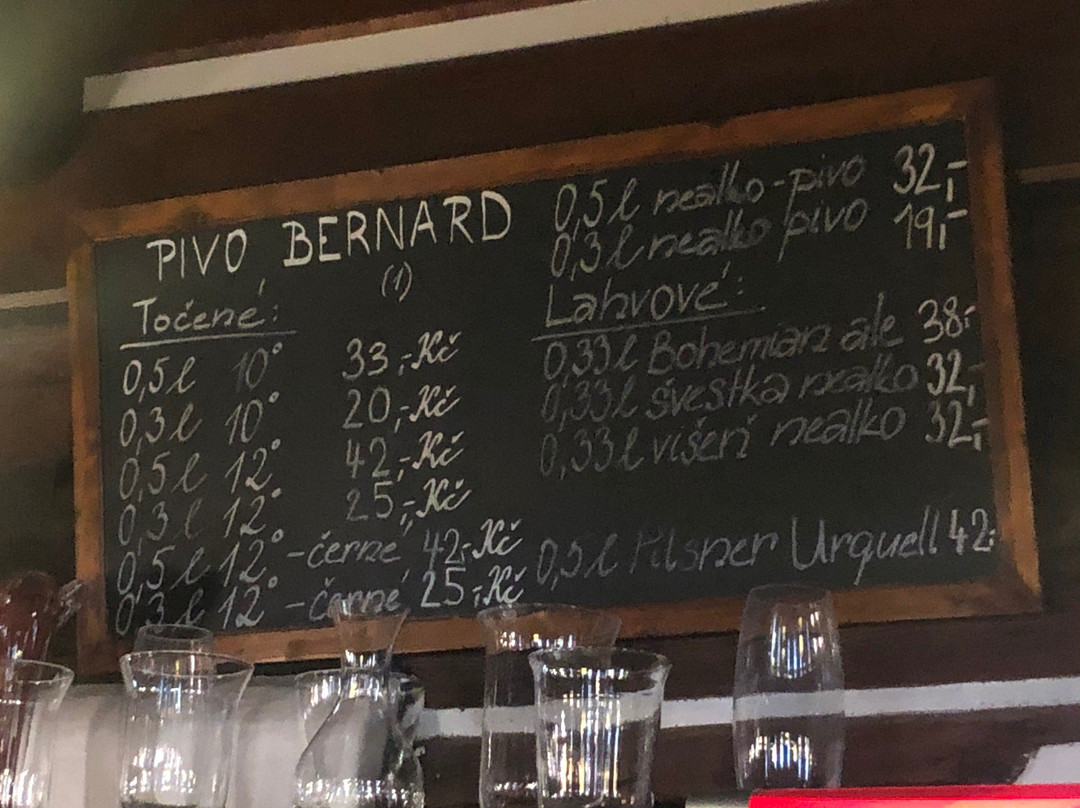 PIVO BERNARD
(1)
Točené:
0,5l 10° 33,-Kč
0,3l 10° 20,-Kč
0,5l 12° 42,-Kč
0,3l 12° 25,-Kč
0,5l 12° -černé 42,-Kč
0,3l 12° -černé 25,-Kč
0,5l nealko-pivo 32,-
0,3l nealko pivo 19,-
Lahvové:
0,33l Bohemian ale 38,-
0,33l švestka nealko 32,-
0,33l višeň nealko 32,-
0,5l Pilsner Urquell 42,-